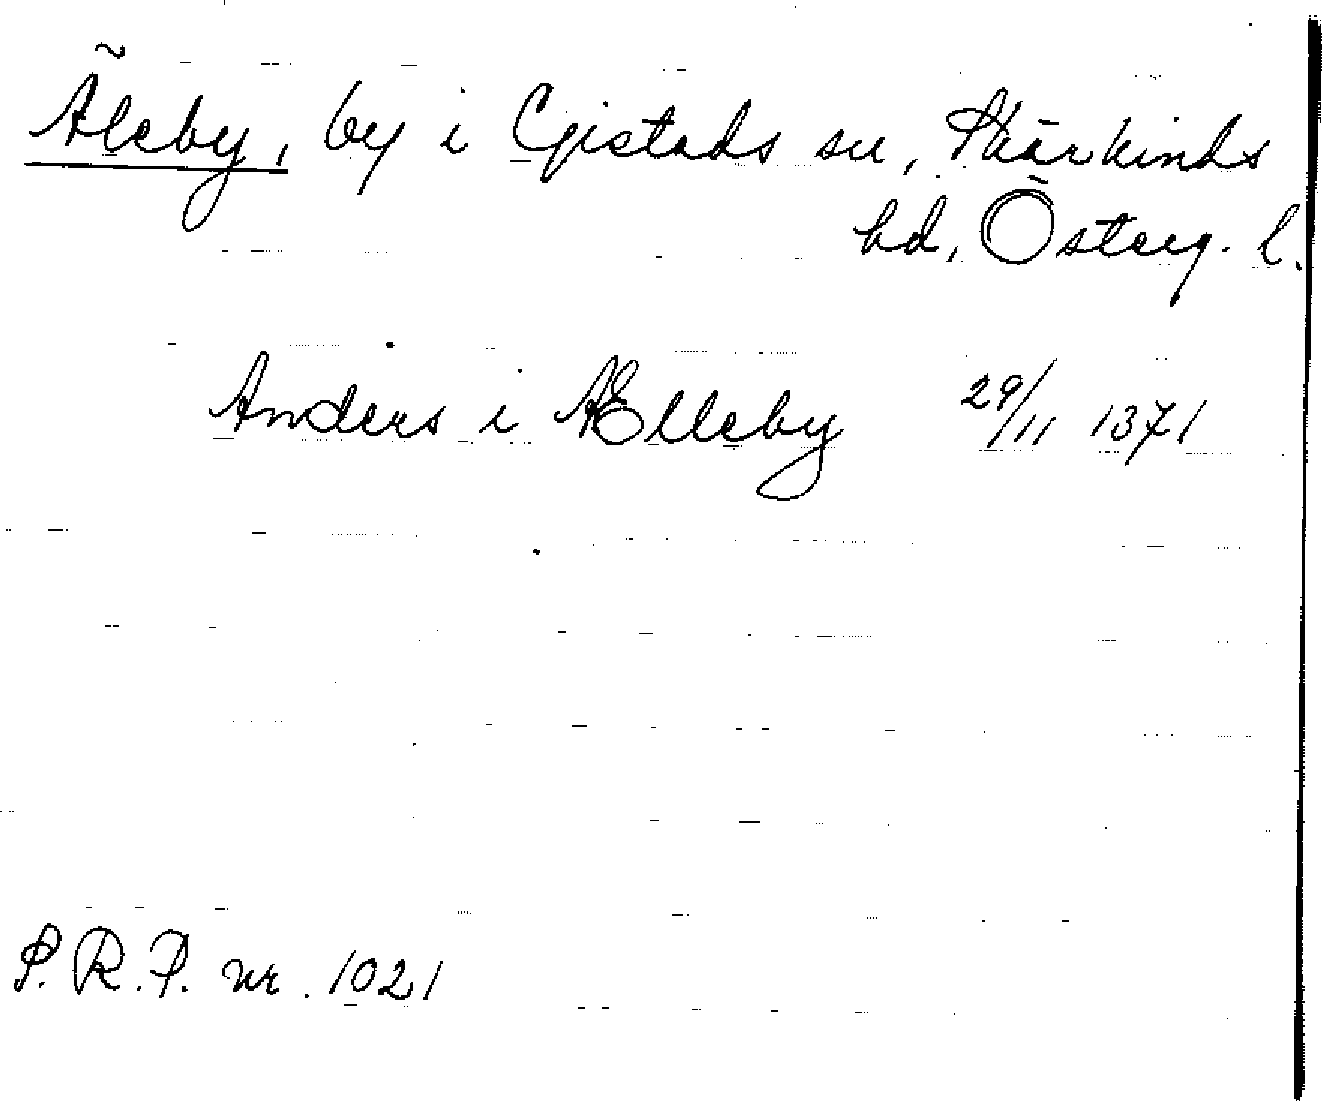 Äleby, by i Gistads sn, Skärkinds
hd, Österg. l.
Anders i Ælleby 29/11 1371
S.R.P. nr. 1021